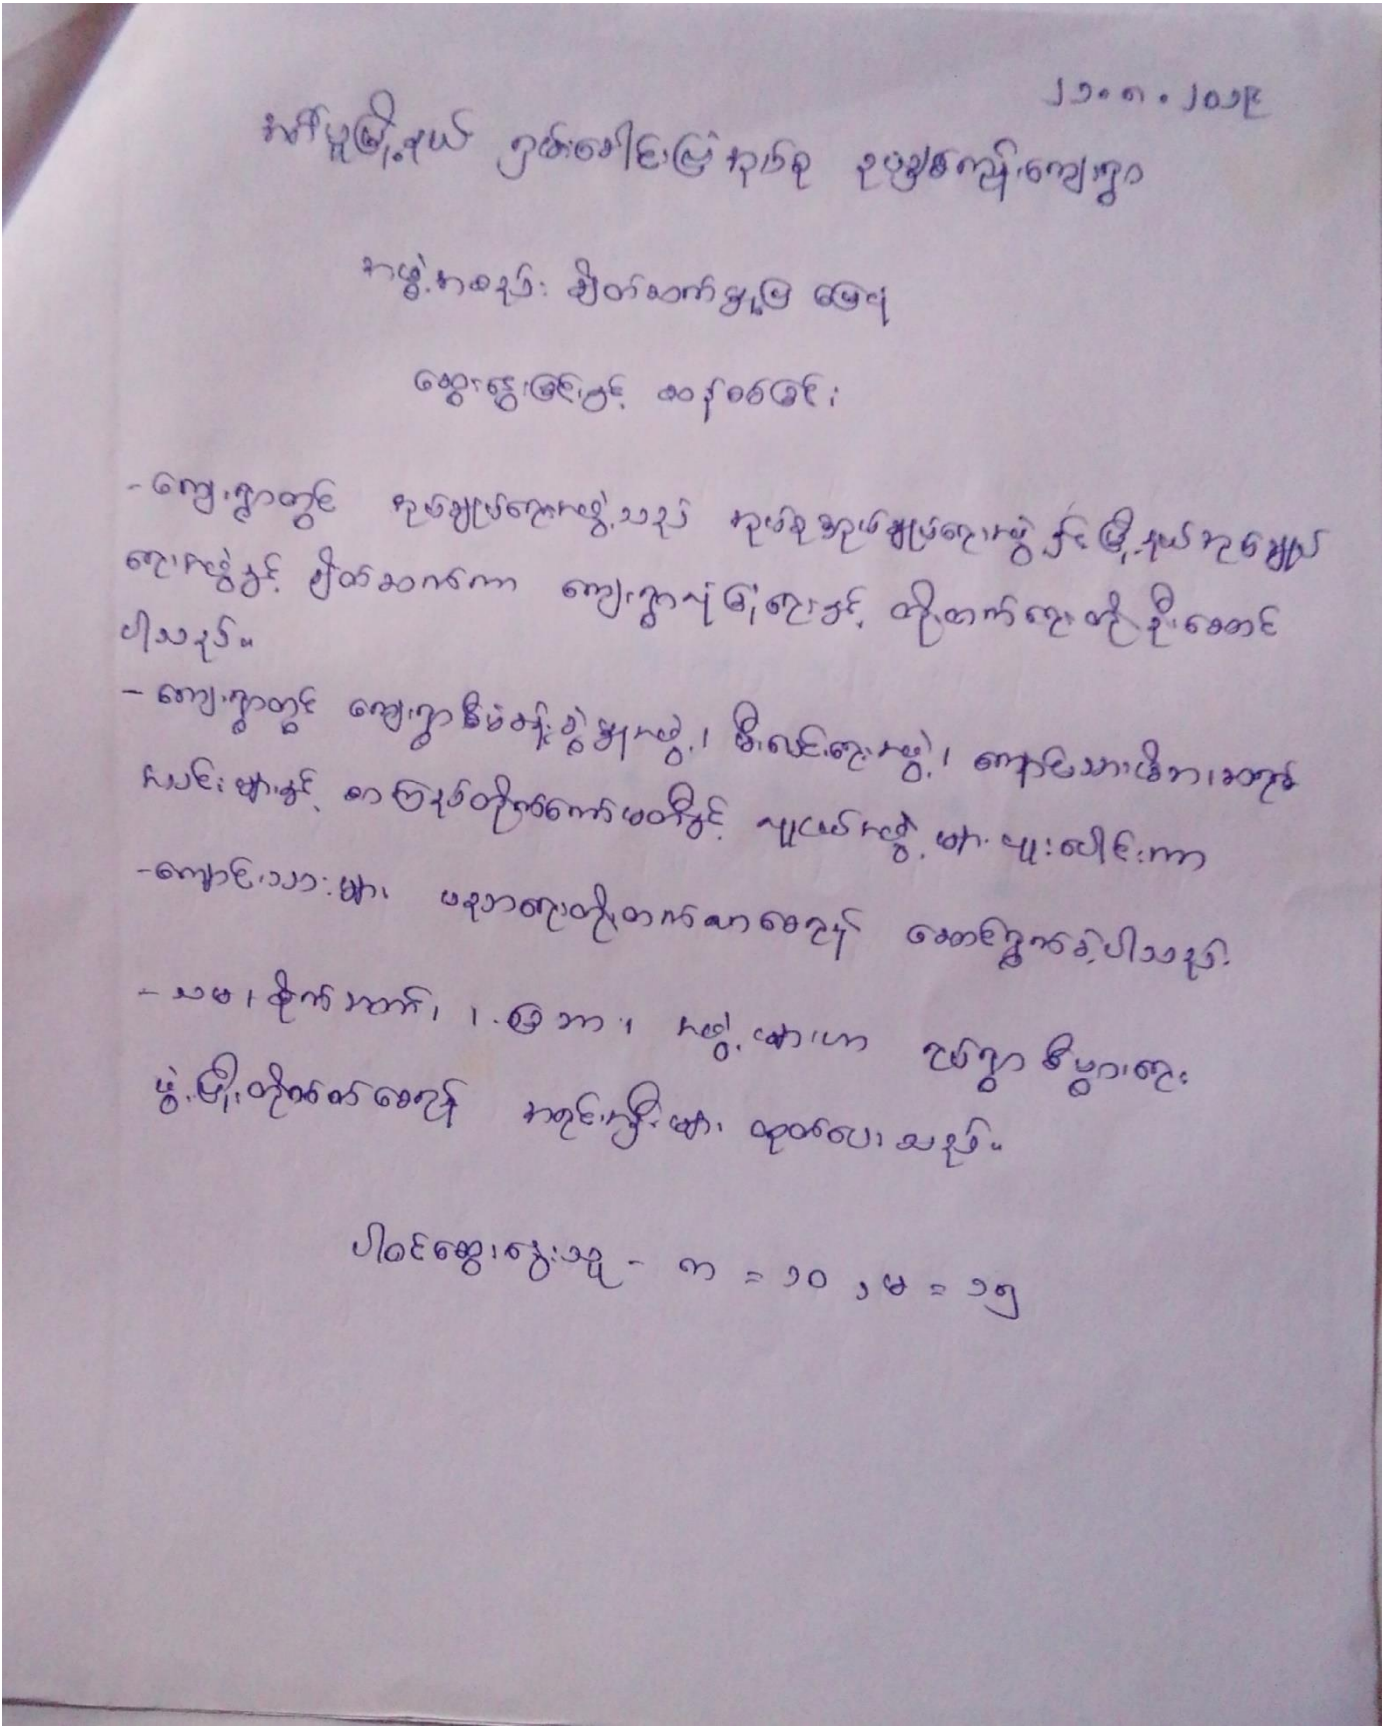 ၂၁.၈.၂၀၁၉
အင်္ဂပူမြို့နယ် ရှမ်းခေါင်းမြဲအုပ်စု ကျွန်းကျေးရွာ
အဖွဲ့အစည်း ချိတ်ဆက်မှုပြ မြေပုံ
ဆွေးနွေးခြင်းနှင့် ဆန်းစစ်ခြင်း
- ကျေးရွာတွင် အုပ်ချုပ်ရေးအဖွဲ့သည် အုပ်စုအုပ်ချုပ်ရေးအဖွဲ့ နှင့် မြို့နယ်အုပ်ချုပ်
ရေးအဖွဲ့နှင့် ချိတ်ဆက်ကာ ကျေးရွာလုံခြုံရေးနှင့် တိုးတက်ရေးတို့ ဦးဆောင်
ပါသည်။
- ကျေးရွာတွင် ကျေးရွာစီမံခန့်ခွဲမှုအဖွဲ့၊ မီးလင်းရေးအဖွဲ့၊ ကျောင်းသားမိဘဆရာ
အသင်းများနှင့် စာကြည့်တိုက်ကော်မတီနှင့် လူငယ်အဖွဲ့များ ပူးပေါင်းကာ
- ကျောင်းသားများ ပညာရေးတိုးတက်လာစေရန် ဆောင်ရွက်ခဲ့ပါသည်။
- သမ၊ စိုက်ဘဏ်၊ မြဘား အဖွဲ့များဟာ ရပ်ရွာစီးပွားရေး
ဖွံ့ဖြိုးတိုးတက်စေရန် အရင်းကြီးများ ထုတ်ပေးသည်။
ပါဝင်ဆွေးနွေးသူ - ကာ = ၁၀ , မ = ၁၅